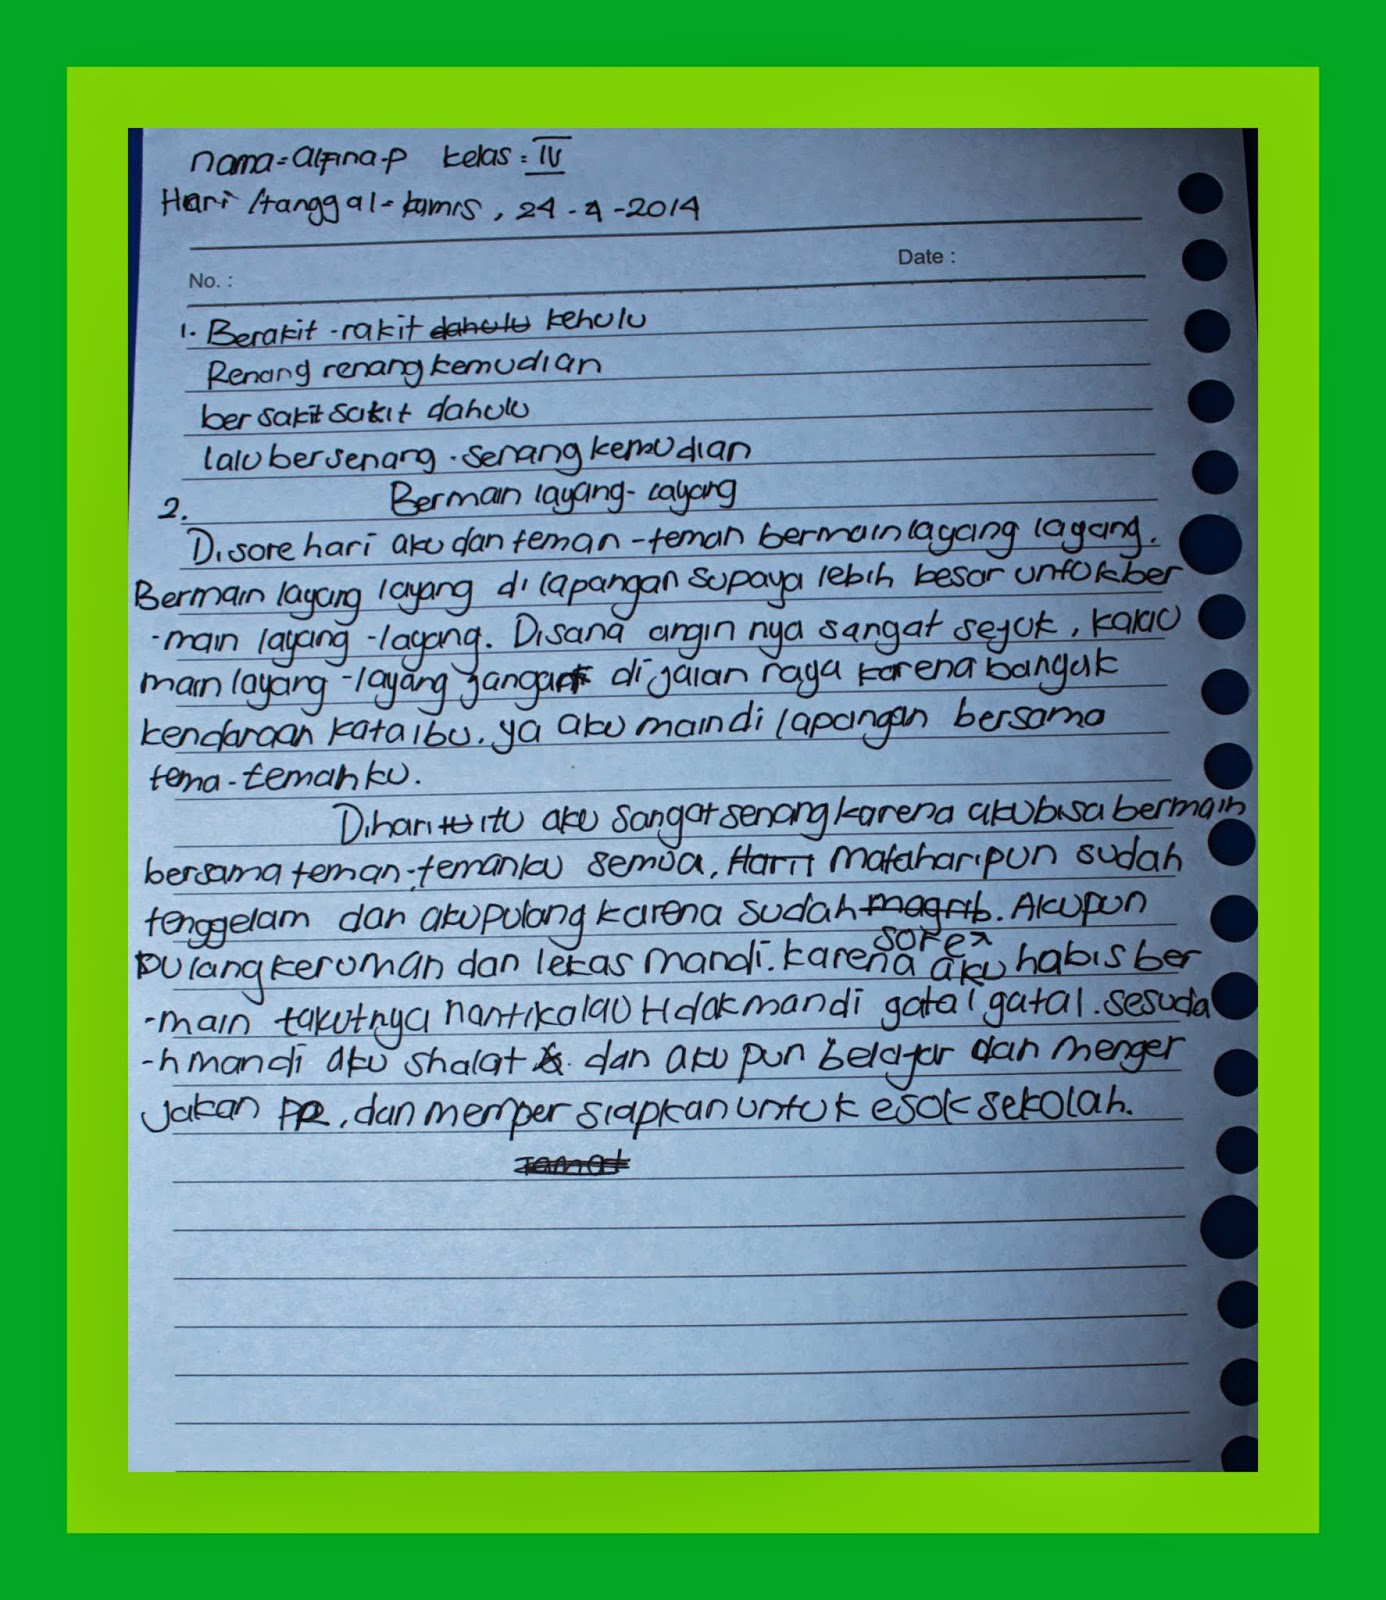 nama = alfina.p kelas : IV
Hari /tanggal - kamis, 24 - 4 - 2014
Date :
No. :
1. Berakit - rakit dahulu kehulu
Renang renang kemudian
ber sakit sakit dahulu
lalu bersenang - senang kemudian
2. Bermain layang - layang
Disore hari aku dan teman - teman bermain layang layang.
Bermain layang layang di lapangan supaya lebih besar untuk ber
-main layang - layang. Disana angin nya sangat sejuk, kalau
main layang - layang jangan di jalan raya karena banyak
kendaraan kata ibu. ya aku main di lapangan bersama
tema - temanku.
Dihari itu aku sangat senang karena aku bisa bermain
bersama teman - temanku semua. Hari matahari pun sudah
tenggelam dan aku pulang karena sudah magrib. Aku pun
sore
pulang kerumah dan lekas mandi. karena aku habis ber
-main takutnya nanti kalau tidak mandi gatal gatal. sesuda
-h mandi aku shalat dan aku pun belajar dan menger
jakan PR, dan memper siapkan untuk esok sekolah.
Tamat